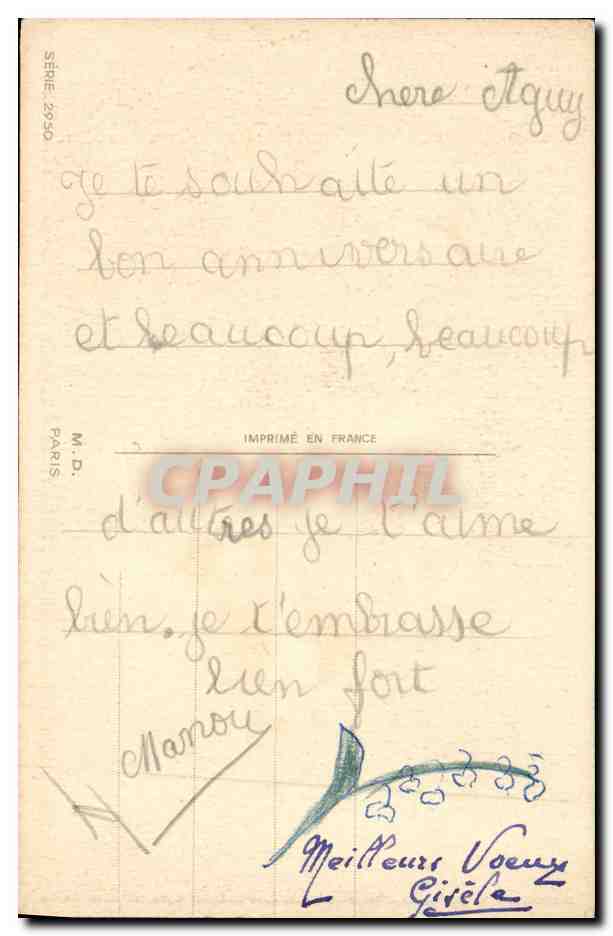 SÉRIE 2950
chere Aguy
Je te souhaite un
bon anniversaire
et beaucoup, beaucoup
IMPRIMÉ EN FRANCE
M.D.
PARIS
CPAPHIL
d'autres je t'aime
bien. je t'embrasse
bien fort
Manou
Meilleurs Voeux
Gisèle